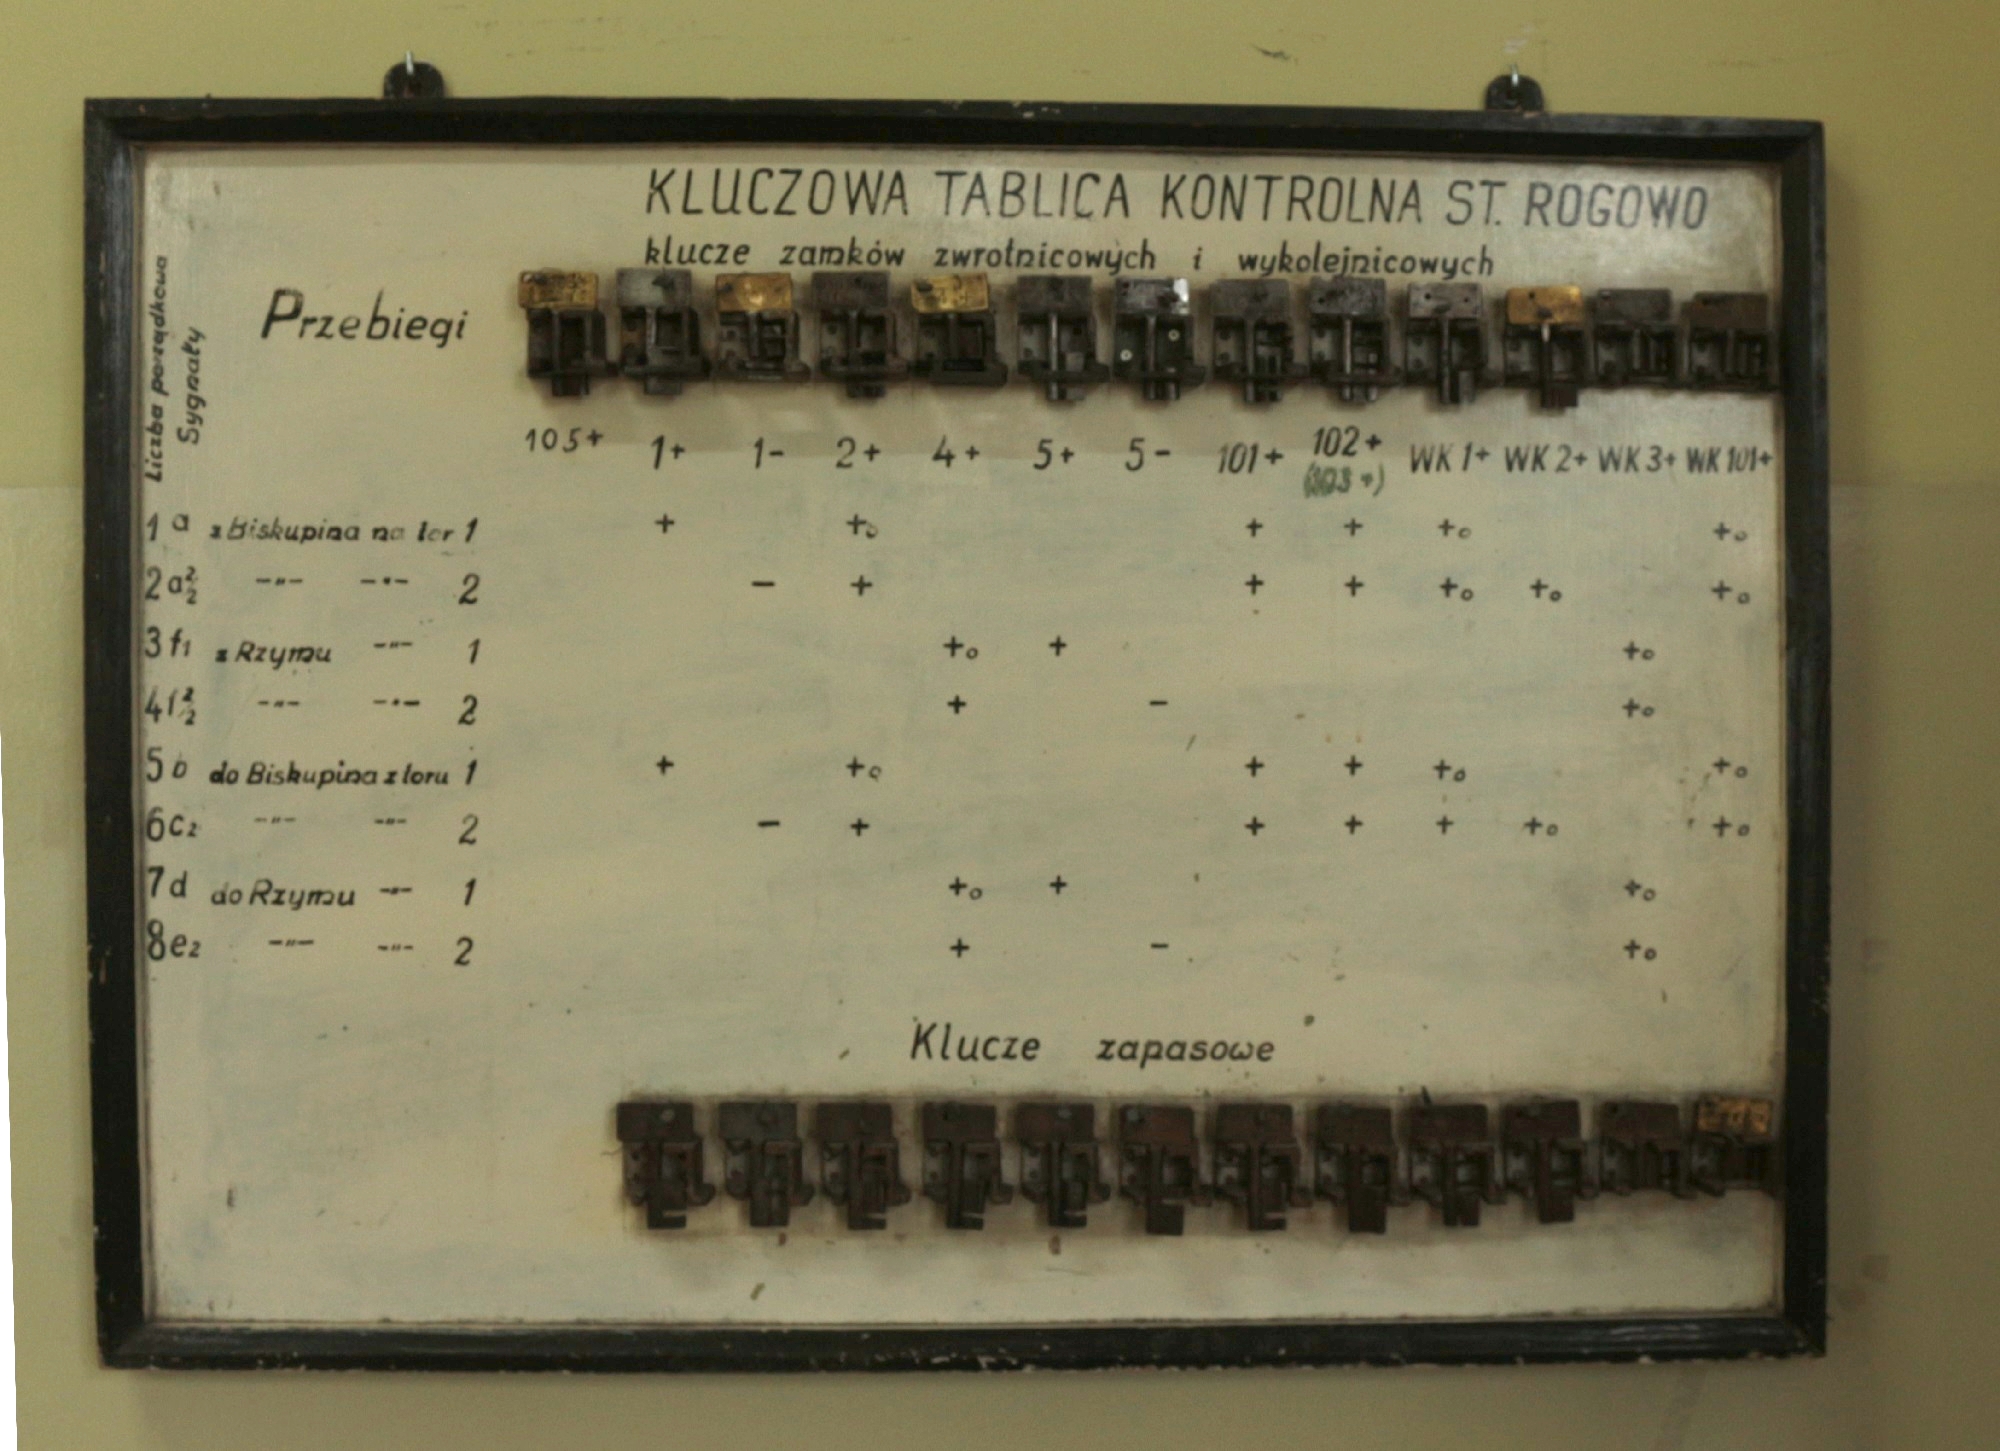 KLUCZOWA TABLICA KONTROLNA ST. ROGOWO
klucze zamków zwrotnicowych i wykolejnicowych
Liczba porządkowa
Sygnały
Przebiegi
105+ 1+ 1- 2+ 4+ 5+ 5- 101+ 102+ WK 1+ WK 2+ WK 3+ WK 101+
1 a z Biskupina na tor 1 + +o + + +o +o
2 a 2/2 -"- -"- 2 - + + + +o +o +o
3 f1 z Rzymu -"- 1 +o + +o
4 f 2/2 -"- -"- 2 + - +o
5 b do Biskupina z toru 1 + +o + + +o +o
6 c2 -"- -"- 2 - + + + + +o +o
7 d do Rzymu -"- 1 +o + +o
8 e2 -"- -"- 2 + - +o
Klucze zapasowe